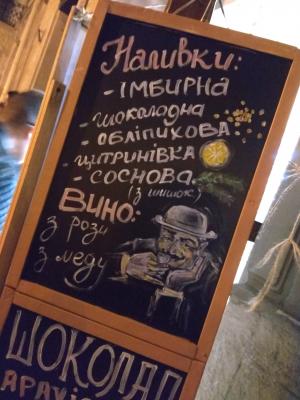 Наливки:
- імбирна
- шоколадна
- обліпихова
- цитринівка
- соснова
(з шишок)
Вино:
з рози
з меду
ШОКОЛАД